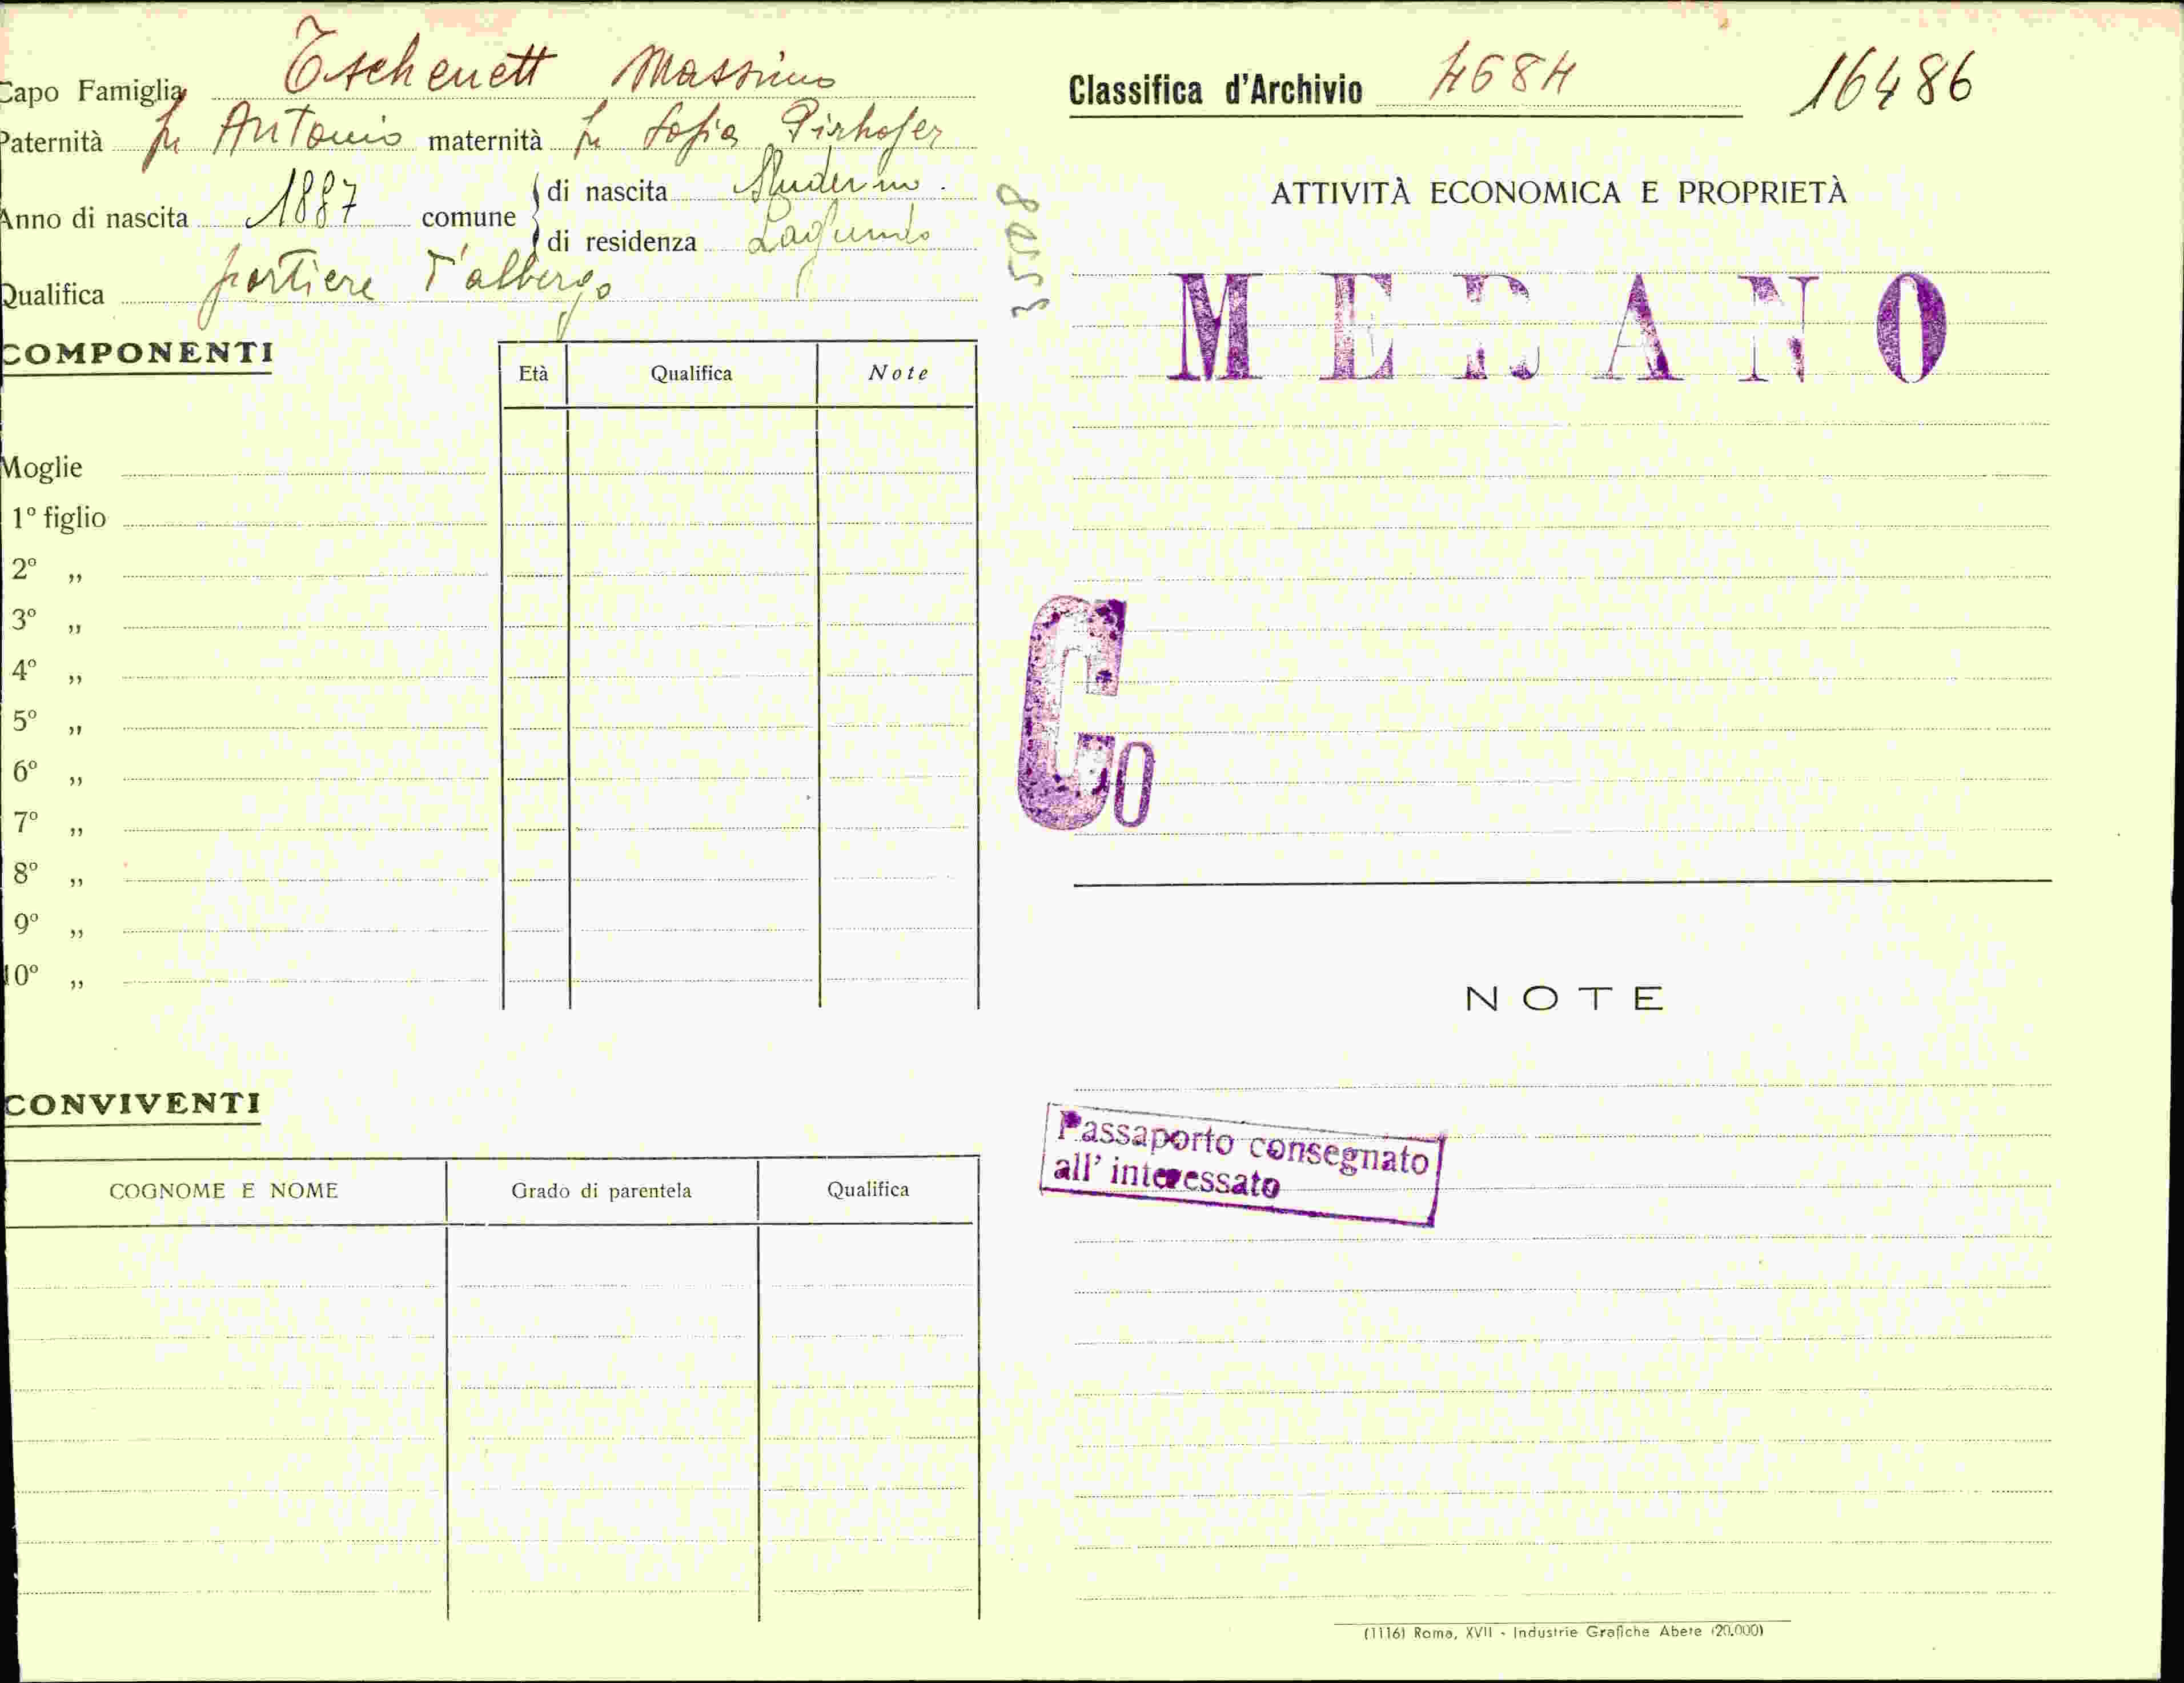 Capo Famiglia Tschenett Massimo
Paternità fu Antonio maternità fu Sofia Pirhofer
Anno di nascita 1887 comune di nascita Sluderno.
di residenza Lagundo
Qualifica portiere d'albergo
COMPONENTI
Età Qualifica Note
Moglie
1º figlio
2º „
3º „
4º „
5º „
6º „
7º „
8º „
9º „
10º „
CONVIVENTI
COGNOME E NOME Grado di parentela Qualifica
Classifica d'Archivio 4684 16486
35508
ATTIVITÀ ECONOMICA E PROPRIETÀ
MERANO
Co
NOTE
Passaporto consegnato
all' interessato
(1116) Roma, XVII - Industrie Grafiche Abete (20.000)